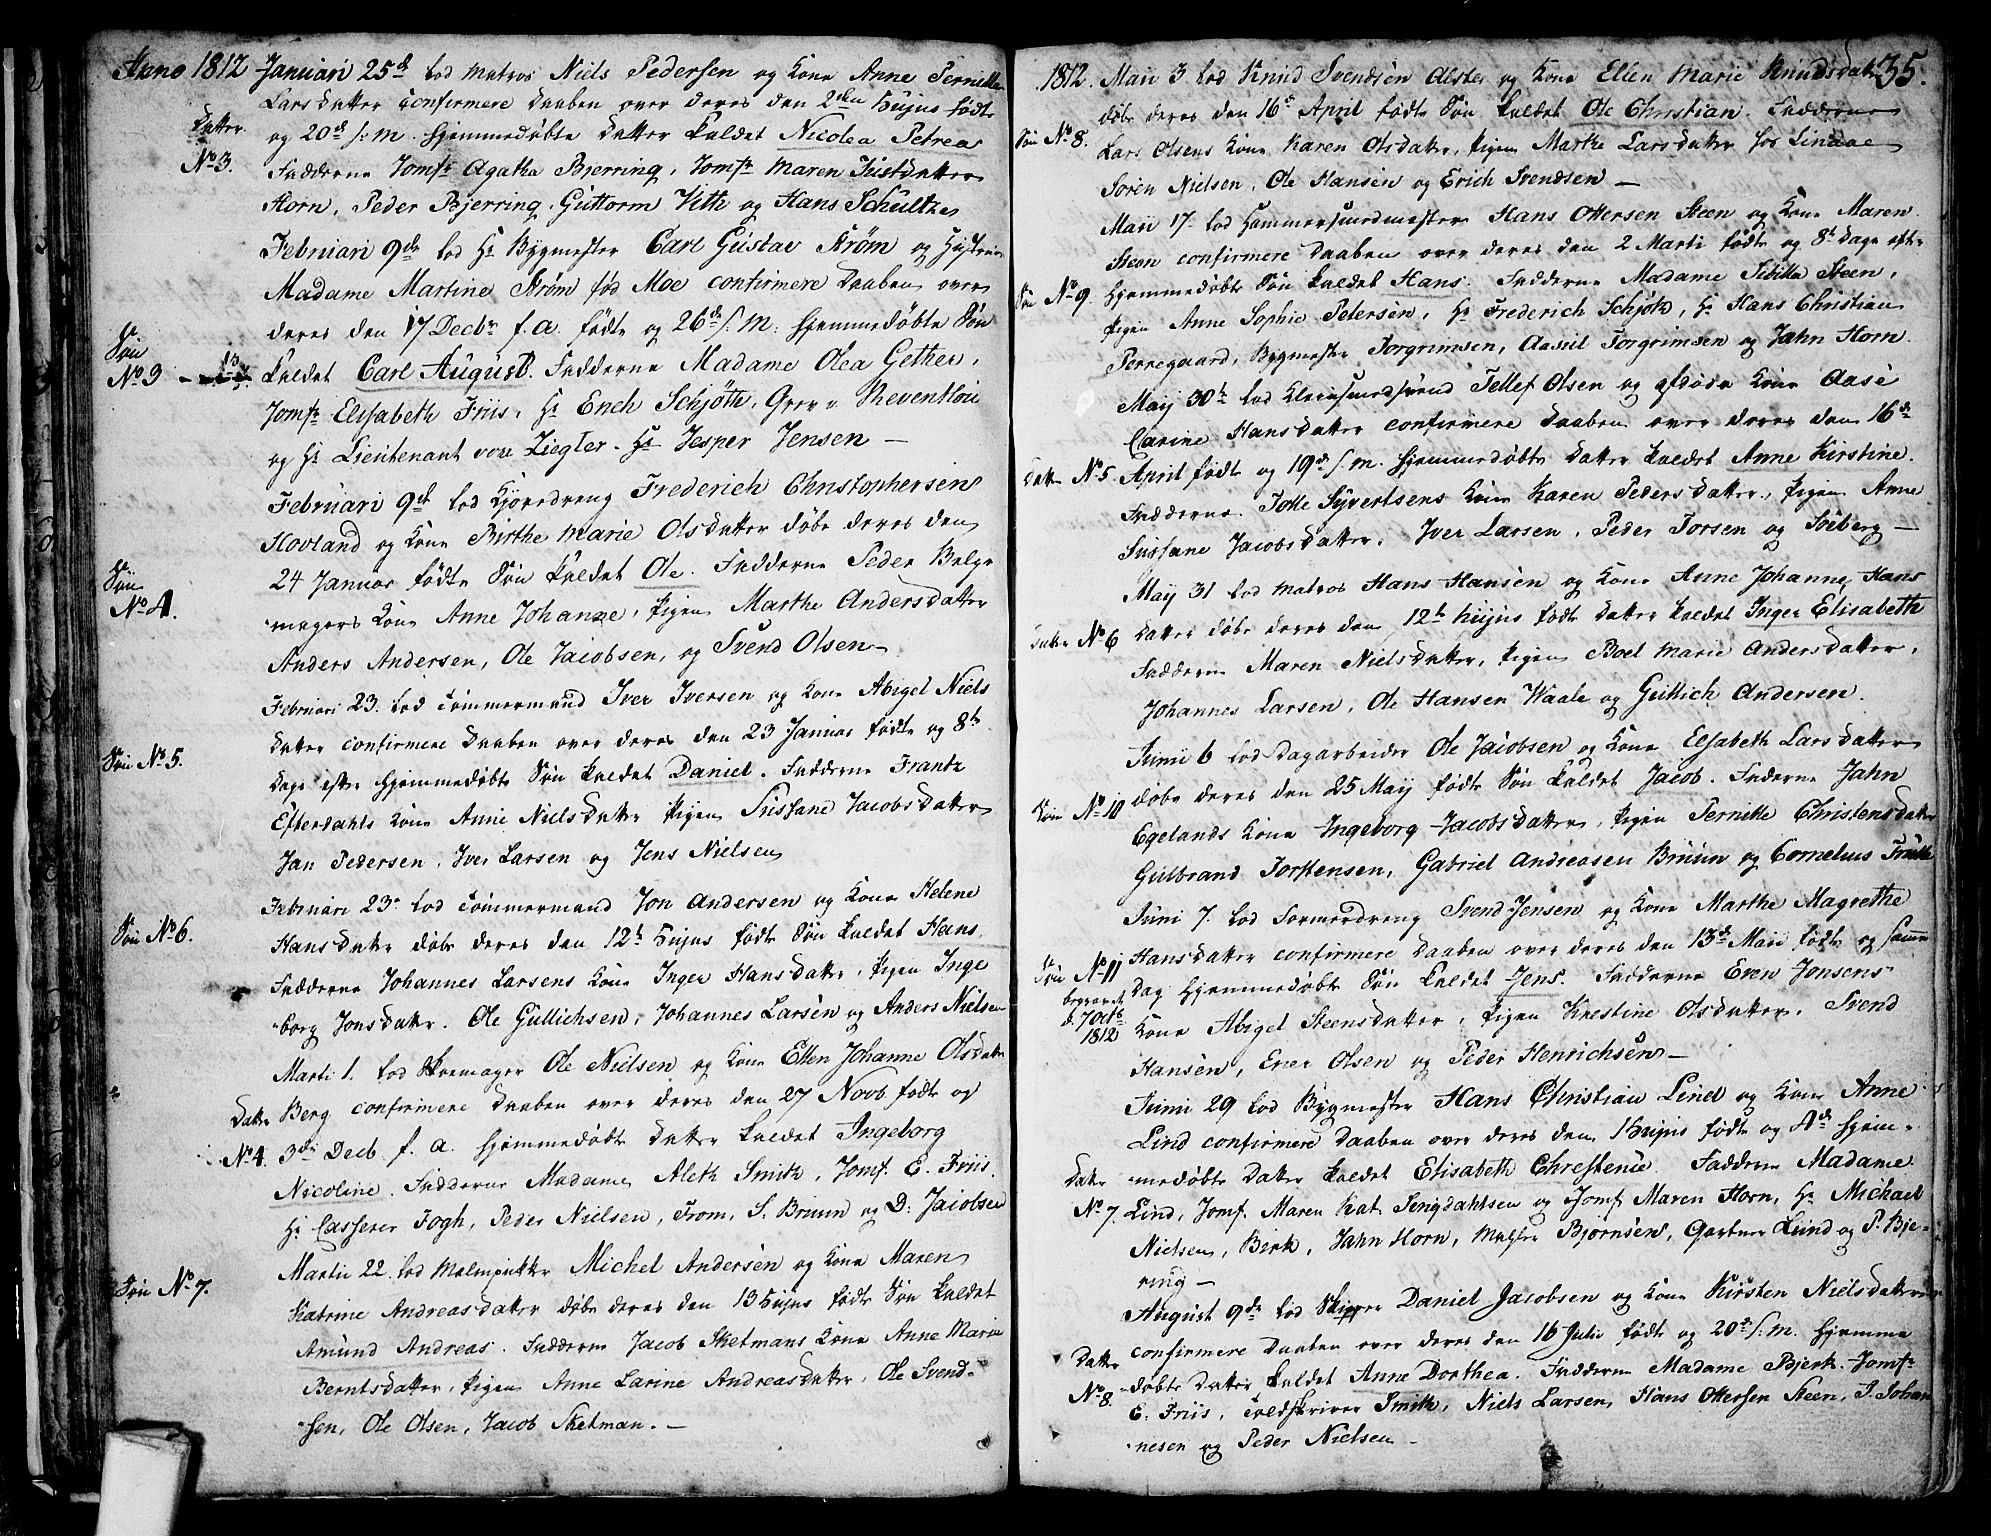 Anno 1812 Januari 25de lod Matros Niels Pedersen og Kone Anne Pernille
Larsdatter confirmere Daaben over deres den 2den hujus fødte
Datter og 20de s: m. hjemmedøbte Datter kaldet Nicolea Petrea
No 3. Fadderne Jomfr Agatha Bjerring, Jomfr Maren Datter
Horn, Peder Bjerring, Guttorm Vith og Hans Schultz
Februari 9de lod Hr Bygmester Carl Gustav Strøm og Hustrue
Madame Martine Strøm fød Moe confirmere Daaben over
deres den 17 Decbr f. a. fødte og 26de s. m. hjemmedøbte Søn
Søn No 3 kaldet Carl August. Fadderne Madame Olea Gether,
Jomfr Elisabeth Friis, Hr Erich Schjøth, Grev v. Reventlou
og Hr Lieutenant von Ziegler. Hr Jesper Jensen —
Februari 9de lod Kjøredreng Frederich Christophersen
Hovland og Kone Birthe Marie Olsdatter døbe deres den
Søn 24 Januar fødte Søn kaldet Ole. Fadderne Peder Belge
No 4. magers Kone Anne Johanne, Pigen Marthe Andersdatter
Anders Andersen, Ole Jacobsen, og Svend Olsen —
Februari 23. lod Tømmermand Iver Iversen og Kone Abigel Niels
datter confirmere Daaben over deres den 23 Januar fødte og 8te
Søn No 5. Dage efter hjemmedøbte Søn kaldet Daniel. Fadderne Frantz
Efterdahls Kone Anne Nielsdatter Pigen Sussane Jacobsdatter
Jan Pedersen, Iver Larsen og Jens Nielsen
Februari 23. lod Tømmermand Jon Andersen og Kone Helene
Søn No 6. Hansdatter døbe deres den 12te hujus fødte Søn kaldet Hans
Fadderne Johannes Larsens Kone Inger Hansdatter, Pigen Inge
borg Jonsdatter. Ole Gullichsen, Johannes Larsen og Anders Nielsen
Marti 1. lod Skoemager Ole Nielsen og Kone Ellen Johanne Olsdatter
Datter Berg confirmere Daaben over deres den 27 Novb. fødte og
No 4. 3de Decb. f. a. hjemmedøbte Datter kaldet Ingeborg
Nicoline. Fadderne Madame Aleth Smith, Jomf. E. Friis
Hr Casserer Fogh, Peder Nielsen, From, S. Bruun og D: Jacobsen
Martii 22. lod Malmpukker Michel Andersen og Kone Maren
Søn No 7. Katrine Andreasdatter døbe deres den 13 hujus fødte Søn kaldet
Amund Andreas. Fadderne Jacob Sketmans Kone Anne Marie
Berntsdatter, Pigen Anne Larine Andreasdatter, Ole Svend-
sen, Ole Olsen, Jacob Sketman. —
35.
1812. Maii 3 lod Knud Svendsen Alster og Kone Ellen Marie Knudsdatter
døbe deres den 16de April fødte Søn kaldet Ole Christian. Fadderne
Søn No 8. Lars Olsens Kone Karen Olsdatter, Pigen Marthe Larsdatter hos Lindaae
Soren Nielsen, Ole Hansen og Erich Svendsen —
Maii 17. lod Hammersmedmester Hans Ottersen Steen og Kone Maren
Steen confirmere Daaben over deres den 2 Marti fødte og 8te Dage efter
Søn No 9. hjemmedøbte Søn kaldet Hans. Fadderne Madame Sibilla Steen,
Pigen Anne Sophie Petersen, Hr Frederich Schjøth, Hr Hans Christian
Pernegaard, Bygmester Torgrimsen, Aasul Torgrimsen og Jahn Horn.
May 30te lod Kleinsmedsvend Tellef Olsen og Kone Aase
Carine Hansdatter confirmere Daaben over deres den 16de
Datter No 5 April fødte og 19de s. m. hjemmedøbte Datter kaldet Anne Kirstine.
Fadderne. Tolle Syvertsens Kone Karen Pedersdatter, Pigen Anne
Sussane Jacobsdatter. Iver Larsen, Peder Torsen og Søeberg —
May 31 lod Matros Hans Hansen og Kone Anne Johanne Hans
Datter No 6 datter døbe deres den 12te hujus fødte Datter kaldet Inger Elisabeth
Fadderne Maren Nielsdatter, Pigen Boel Marie Andersdatter,
Johannes Larsen, Ole Hansen Waale og Gullich Andersen.
Junii 6 lod Dagarbeider Ole Jacobsen og Kone Elsabeth Larsdatter
Søn No 10 døbe deres den 25 May fødte Søn kaldet Jacob. Fadderne Jahn
Egelands Kone Ingeborg Jacobsdatter, Pigen Pernille Christensdatter
Gulbrand Torstensen, Gabriel Andreasen Bruun og Cornelius
Juni 7. lod Formerdreng Svend Jensen og Kone Marthe Magrethe
Hansdatter confirmere Daaben over deres den 13de Maii fødte og samme
Søn No 11 Dag hjemmedøbte Søn kaldet Jens. Fadderne Even Jonsens
begravet d. 7 Octb 1812 Kone Abigel Steensdatter, Pigen Knestine Olsdatter. Svend
Hansen, Even Olsen og Peder Henrichsen —
Junii 29 lod Bygmester Hans Christian Lind og Kone Anne
Lind confirmere Daaben over deres den 1 hujus fødte og 4de hjem-
Datter medøbte Datter kaldet Elisabeth Christenie. Fadderne Madame
No 7. Lind, Jomf. Maren Kat. Sengdahlsen og Jomf. Maren Horn, Hr Michael
Nielsen, Birk, Jahn Horn, Bjornsen, Gartner Lund og P. Bjer-
ring —
August 9de lod Skipper Daniel Jacobsen og Kone Kirsten Nielsdatter
confirmere Daaben over deres den 16 Julii fødte og 20de s. m. hjemme
Datter døbte Datter kaldet Anne Dorthea. Fadderne Madame Bjerk. Jomfr
No 8. E. Friis, Toldskriver Smith, Niels Larsen, Hans Ottersen Steen, S. Johan
nesen og Peder Nielsen —